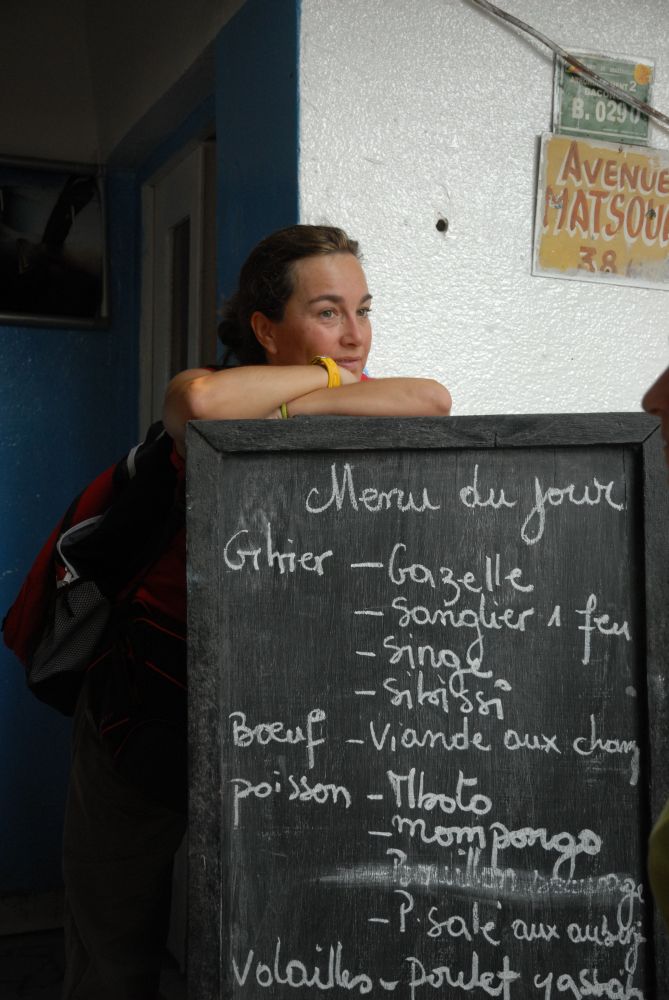 ARRONDISSEMENT 2
BACON
B. 0290
AVENUE
MATSOU
38
Menu du jour
Gibier – Gazelle
– Sanglier 1 feu
– Singe
– Sibissi
Bœuf – Viande aux champ
poisson – Mboto
– Mompongo
Bouillon sauvage
– P. salé aux auberg
Volailles – poulet yassa